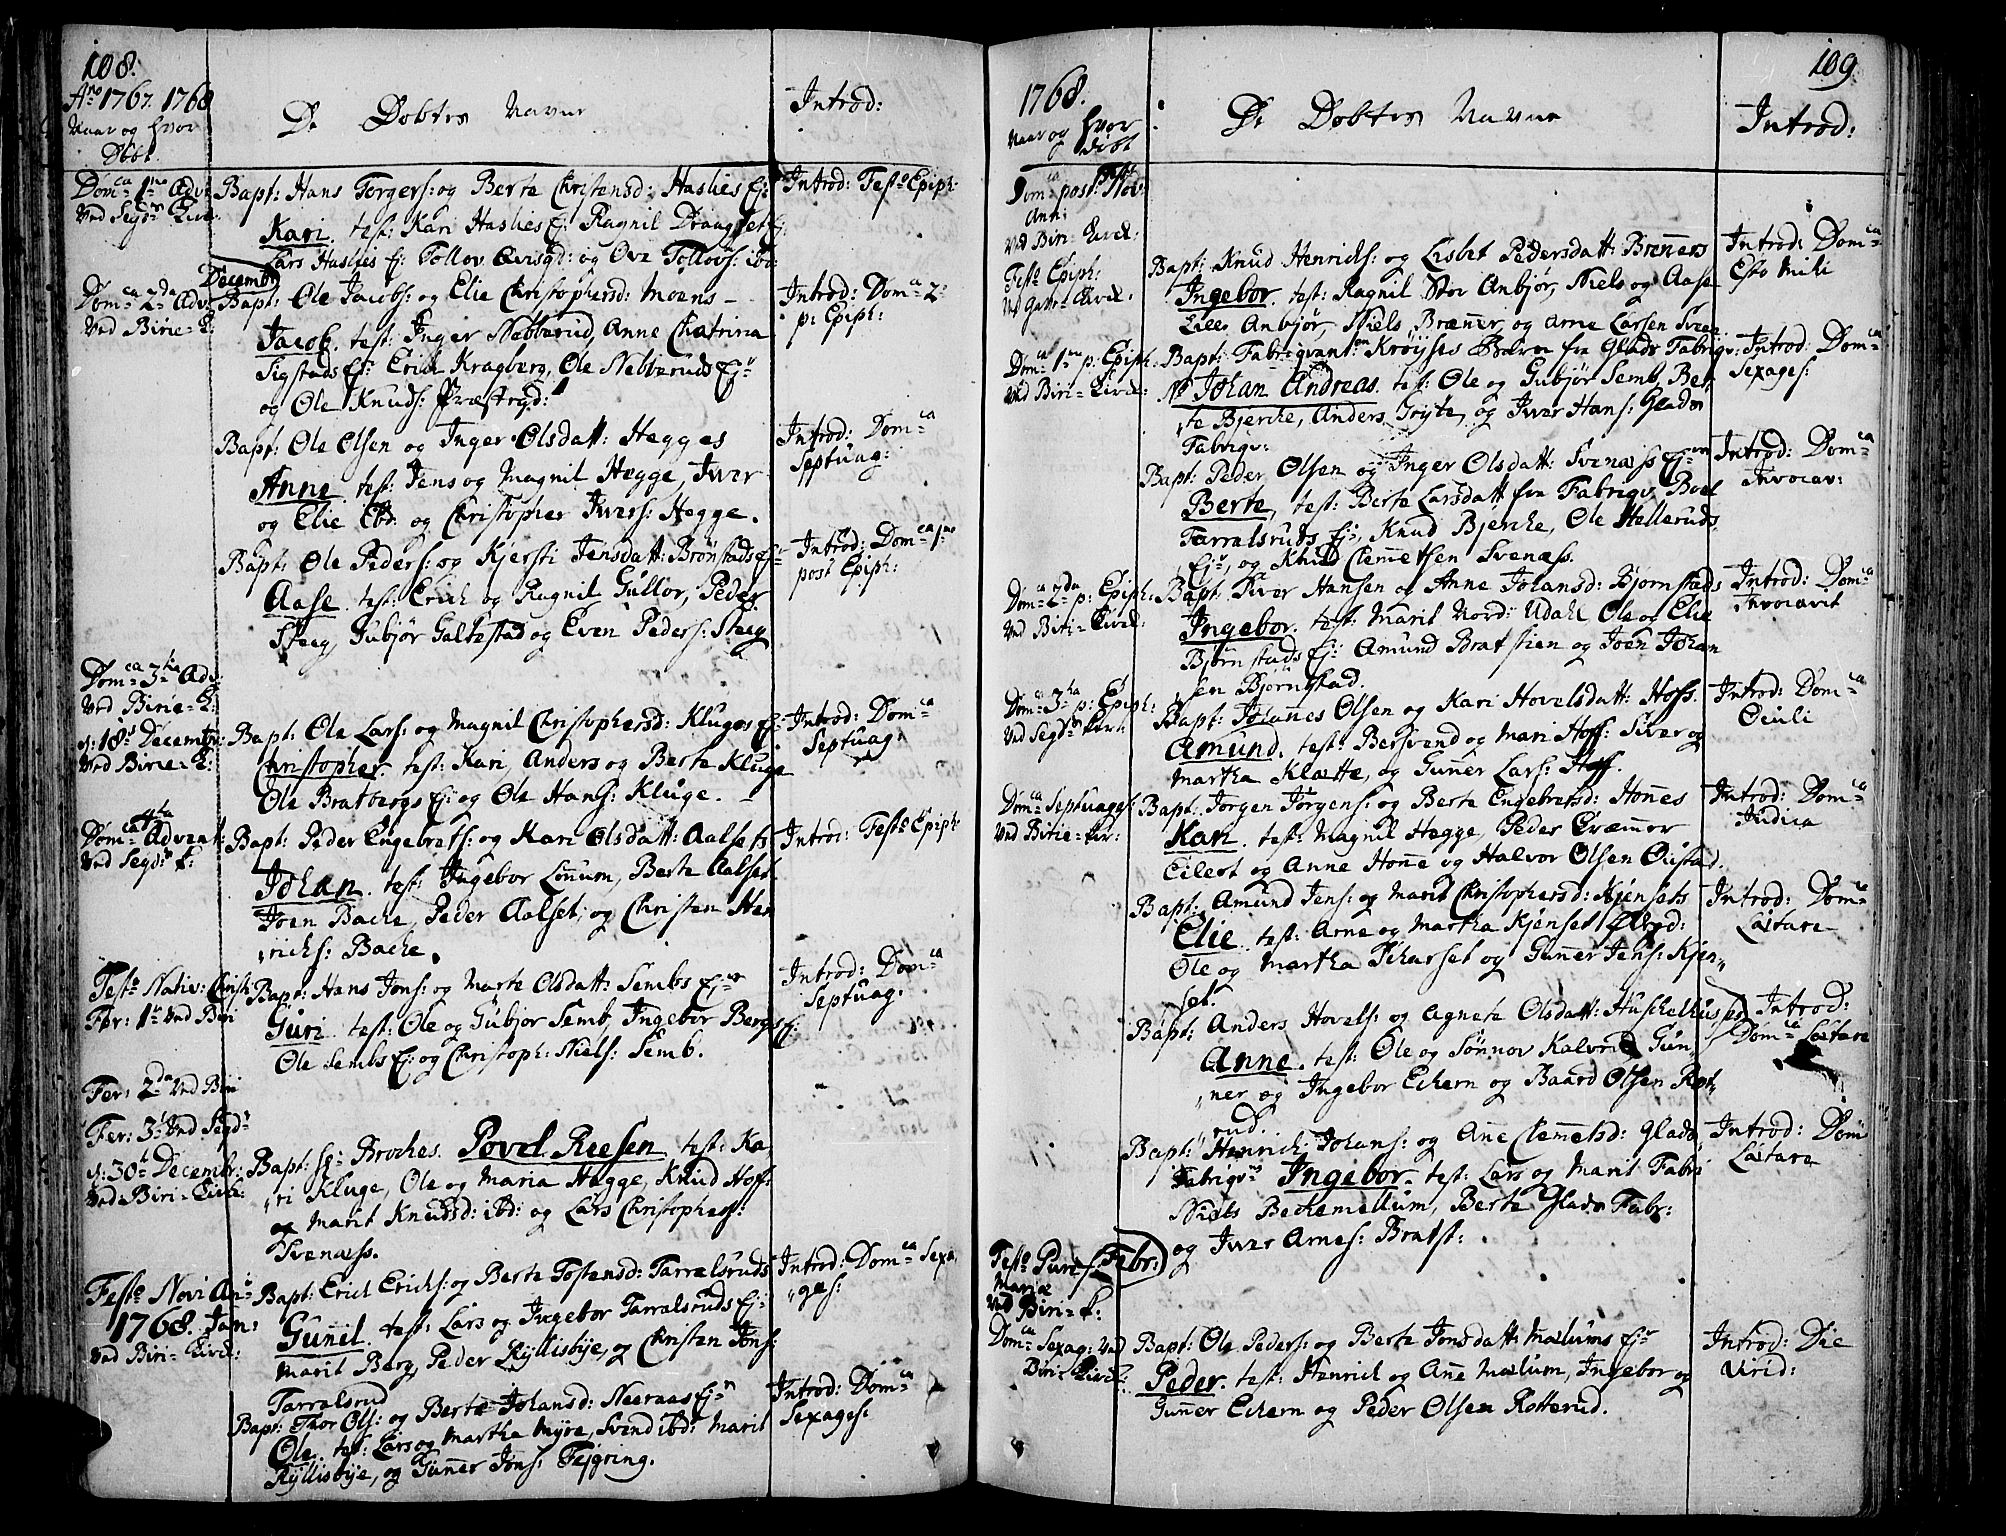 108.
Aⁿᵒ 1767. 1768
Naar og hvor
Døbt.
De Døbtes Navne
Introd:
Domᶜᵃ 1ᵐᵃ Adv:
Ved Segdˢ Kirke
Bapt: Hans Torgers: og Berte Christensd: Haslies Ej:
Kari. test: Kari Haslies Ej: Ragnil Draagset Ej:
Lars Haslies Ej: Tollov Qvisgd: og Ove Tollovs: ibd:
Introd: Festo Epiph:
Decembr:
Domᶜᵃ 2ᵈᵃ Adv:
Ved Birie-K:
Bapt: Ole Jacobs: og Elie Christophersd: Moens
Jacob. test: Inger Nebberud, Anne Chatrina
Sigstads Ej: Erich Kragberg, Ole Nebberuds Ej:
og Ole Knuds: Præstegd:
Introd: Domᶜᵃ 2ᵈᵃ
p: Epiph:
Bapt: Ole Olsen og Inger Olsdatt: Hegges
Anne. test: Jens og Magnil Hegge, Iver
og Elie ibd: og Christopher Ivers: Hegge.
Introd: Domᶜᵃ
Septuag:
Bapt: Ole Peders: og Kjersti Jensdatt: Brønstads Ej:
Aase. test: Erich og Ragnil Gullor, Peder
Steeg, Gubjør Galtestad og Even Peders: Steeg
Introd: Domᶜᵃ 1ᵐᵃ
post Epiph:
Domᶜᵃ 3ᵗⁱᵃ Adv:
Ved Birie-K:
d: 18ᵈ Decembr:
Ved Birie-K:
Bapt: Ole Lars: og Magnil Christophersd: Kluges Ej:
Christopher. test: Kari, Anders og Berte Kluge
Ole Bratbergs Ej: og Ole Hans: Kluge.
Introd: Domᶜᵃ
Septuag:
Domᶜᵃ 4ᵗᵃ Advent:
Ved Segdˢ K:
Bapt: Peder Engebrets: og Kari Olsdatt: Aalsets
Johan. test: Ingebor Lonum, Berte Aalset.
Joen Bache, Peder Aalset, og Christen Hen
richs: Bache.
Introd: Festo Epiph:
Festo Nativ: Christi
Fer: 1ᵐᵃ Ved Biri
Bapt: Hans Jons: og Marte Olsdatt: Sembs Ej:
Guri. test: Ole og Gubjor Semb, Ingebor Bergs Ej:
Ole Sembs Ej: og Christoph: Niels: Semb.
Introd: Domᶜᵃ
Septuag:
Fer: 2ᵈᵃ Ved Biri
Fer: 3ᵗⁱᵃ Ved Segdˢ
d: 30ᵗ Decembr:
Ved Biri-Kirke:
Bapt: Sr: Broches. Povel Reesen. test: Ka,
ri Kluge, Ole og Maria Hegge, Knud Hoff:
og Marit Knudsd: ibd: og Lars Christophers:
Svenæss.
Festo Novi Anⁱ
1768. Jan:
Ved Biri-Kirke:
Bapt: Erich Erichs: og Berte Tostensd: Tarralsruds
Gunil. test: Lars og Ingebor Tarralsruds Ej:
Marit Berg, Peder Kyllisbye, og Christen Jons:
Tarralsrud
Introd: Domᶜᵃ Sexa
ges:
Bapt: Thor Ols: og Berte Johansd: Neeraas Ej:
Ole. test: Lars og Martha Myre, Svend ibd: Marit
Kyllisbye, og Gunner Jons: Fejgring.
Introd: Domᶜᵃ
Sexages:
109.
1768.
Naar og hvor
døbt
De Døbtes Navne
Introd:
Domᶜᵃ post Nov:
Ann:
Ved Biri-Kirke:
Festo Epiph:
Ved Kirke:
Bapt: Knud Henrichs: og Lisbet Pedersdatt: Breners
Ingebor. test: Ragnil Stor Anbjør, Niels og Aase
Lille Anbjør, Niels Brænner, og Arne Larsen Sveen
Introd: Domᶜᵃ
Esto Mihi
Domᶜᵃ 1ᵐᵃ p: Epiph.
Ved Biri-Kirke:
Bapt: Fabriqvantᵉⁿ Krøyses Børn fra Glads Fabriqv:
Nˡ Johan Andreas. test: Ole og Gubjør Semb, Ber
te Bjerche, Anders Gryte, og Iver Hans: Glads
Fabriqv:
Introd: Domᶜᵃ
Sexages:
Bapt: Peder Olsen og Inger Olsdatt: Svenæss Ej:
Berte, test: Berte Larsdatt fra Fabriqv, Boel
Tarralsruds Ej:, Knud Bjerche, Ole Helleruds
Ej:, og Knud Clemetsen Svenæss.
Introd: Domᶜᵃ
Invocav:
Domᶜᵃ 2ᵈᵃ p: Epiph:
Ved Biri-Kirke:
Bapt: Iver Hansen og Anne Johansd: Bjørnstads
Ingebor. test: Marit Nord: Udahl Ole og Elie
Bjørnstads Ej: Amund Bratstien og Joen Johan
sen Bjørnstad.
Introd: Domᶜᵃ
Invocavit
Domᶜᵃ 3ᵗⁱᵃ p: Epiph:
Ved Segdˢ Kir:
Bapt: Johannes Olsen og Kari Hovelsdatt: Hoffs.
Amund. test: Bersvend og Mari Hoff: Siver og
Martha Klætte, og Gunner Lars: Hoff.
Introd: Domᶜᵃ
Oculi
Domᶜᵃ Septuages:
Ved Birie-Kir:
Bapt: Jørgen Jørgens: og Berte Engebretsd: Honnes
Kari. test: Magnil Hegge, Peder Cræmmer
Eilert og Anne Honne og Halvor Olsen Ouistad.
Introd: Domᶜᵃ
Judica
Bapt: Amund Jens: og Marit Christophersd: Kjensets
Elie. test: Arne og Martha Kjenset
Ole og Martha Skarset og Gunner Jens: Kjen
set.
Introd: Domᶜᵃ
Lætare
Bapt: Anders Hovels: og Agnete Olsdatt: Huschelhus
Anne. test: Ole og Sønnov Kalverud, Gun
ner og Ingebor Echern og Baard Olsen Rot
rud.
Introd:
Domᶜᵃ Lætare
Bapt: Henrich Johans: og Ane Clemetsd: Glads
Fabriqvˢ Ingebor. test: Lars og Marit Fabri
Niels Bechemellum, Berte Glads Fabr:
og Iver Arnes: Bratst:
Introd: Dom
Lætare
Festo Purif: Febr:
Mariæ
Ved Biri-K:
Domᶜᵃ Sexag: Ved
Biri-Kirke:
Bapt: Ole Peders: og Berte Jonsdatt: Mælums Ej:
Peder. test: Henrich og Ane Mælum, Ingebor og
Gunner Echern og Peder Olsen Rotterud.
Introd: Die
Virid: